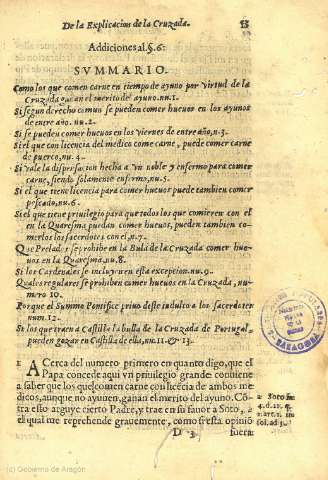 De la Explicacion de la Cruzada. 
Addiciones al §. 6.
SVMMARIO.
Como los que comen carne en tiempo de ayuno por virtud de la
Cruzada ganan el merito de ayuno. nu. 1.
Si segun derecho comun se pueden comer hueuos en los ayunos
de entre año. nu. 2.
Si se pueden comer hueuos en los viernes de entre año, n. 3.
Si el que con licencia del medico come carne, puede comer carne
de puerco. nu. 4.
Si vale la dispensacion hecha a vn noble y enfermo para comer
carne, siendo solamente enfermo, nu. 5.
Si el que tiene licencia para comer hueuos puede tambien comer
pescado, nu. 6.
Si el que tiene priuilegio para que todos los que comieren con el
en la Quaresma puedan comer hueuos, pueden tambien co-
merlos los sacerdotes con el, n. 7.
Que Prelados se prohibe en la Bula de la Cruzada comer hue-
uos en la Quaresma, nu. 8.
Si los Cardenales se incluyen en esta excepcion. nu. 9.
Quales regulares se prohiben comer hueuos en la Cruzada, nu-
mero 10.
Porque el Summo Pontifice priuo deste indulto a los sacerdotes
num. 12.
Si los que traen a Castilla la bulla de la Cruzada de Portugal,
pueden gozar en Castilla de ella, nu. 11. & 13.
1 Acerca del numero primero en quanto digo, que el
Papa concede aqui vn priuilegio grande conuiene
a saber que los que comen carne con licēcia de ambos me-
dicos, aunque no ayunen, ganan el merito del ayuno. Cō-
tra esto arguye cierto Padre, y trae en su fauor a Soto,
el qual me reprehende grauemente, como si esta opiniō
D 3 fuera
a Soto in
4. d. 12. q.